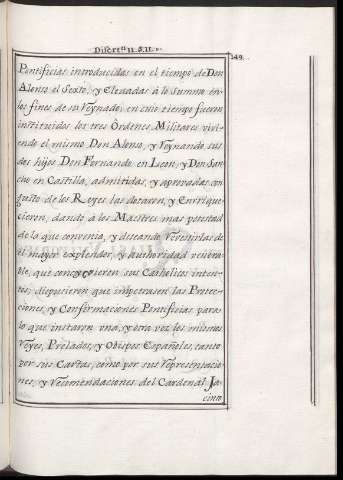 Discrets. II. §. II.
249.
Pontificias introducidas en el tiempo de Don
Alonso el Sexto, y Elevadas à lo Summo en
los fines de su Reynado, en cuio tiempo fueron
instituidos los tres Órdenes Militares vivi-
endo el mismo Don Alonso, y Reynando sus
dos hijos Don Fernando en Leon, y Don San-
cho en Castilla, admitidas, y aprovadas con
gusto de los Reyes, las dotaron, y Enrique-
cieron, dando à los Maestres mas potestad
de la que convenia, y deseando Revestirlas de
el mayor explendor, y authoridad venera-
ble, que conocieron sus Catholicos inten-
tos; dispusieron que impetrasen las Protec-
ciones, y Confirmaciones Pontificias, para
lo que instaron una, y otra vez los mismos
Reyes, Prelados, y Obispos Españoles, tanto
por sus Cartas, como por sus Representacio-
nes, y Recomendaciones del Cardenal Ja-
cinto